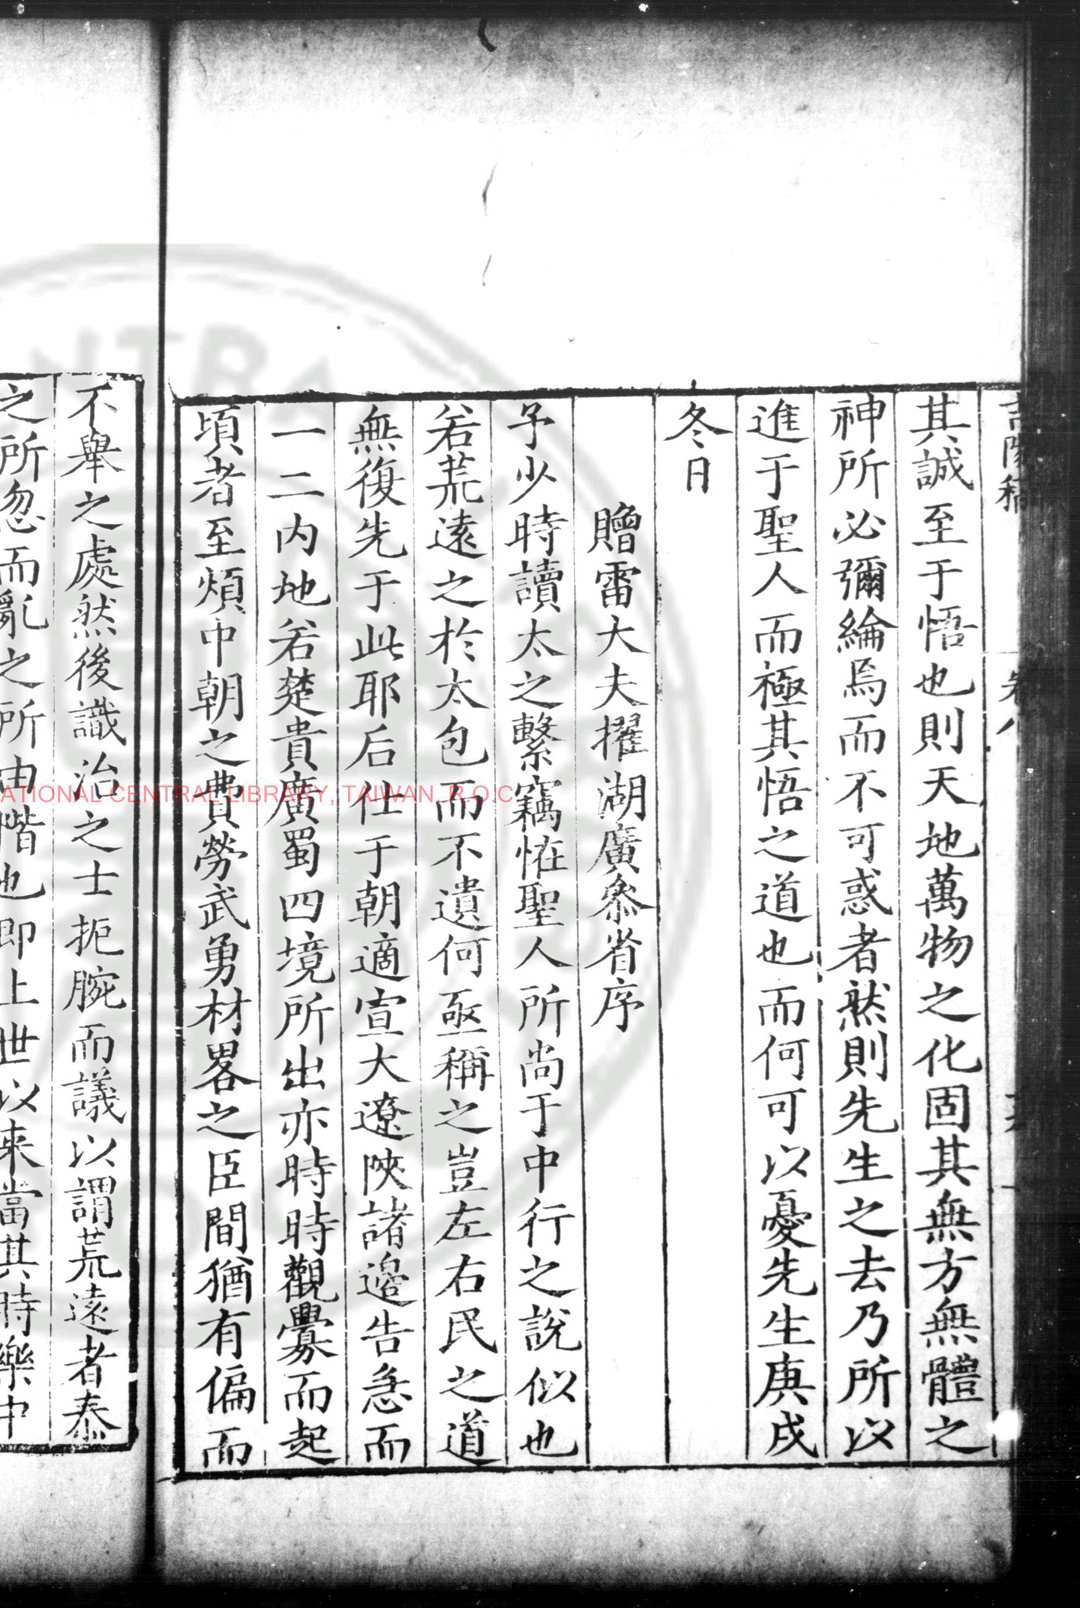 其誠至于悟也則天地萬物之化固其無方無體之
神所必彌綸焉而不可惑者然則先生之去乃所以
進于聖人而極其悟之道也而何可以憂先生庚戌
冬日
贈雷大夫擢湖廣叅省序
予少時讀太之繫竊恠聖人所尚于中行之說似也
若荒遠之於太包而不遺何亟稱之豈左右民之道
無復先于此耶后仕于朝適宣大遼陝諸邊告急而
一二内地若楚貴廣蜀四境所出亦時時觀釁而起
頃者至煩中朝之費勞武勇材畧之臣間猶有偏而
不舉之處然後識治之士扼腕而議以謂荒遠者泰
之所忽而亂之所由階也即上世以来當其時樂中
NATIONAL CENTRAL LIBRARY, TAIWAN, R.O.C